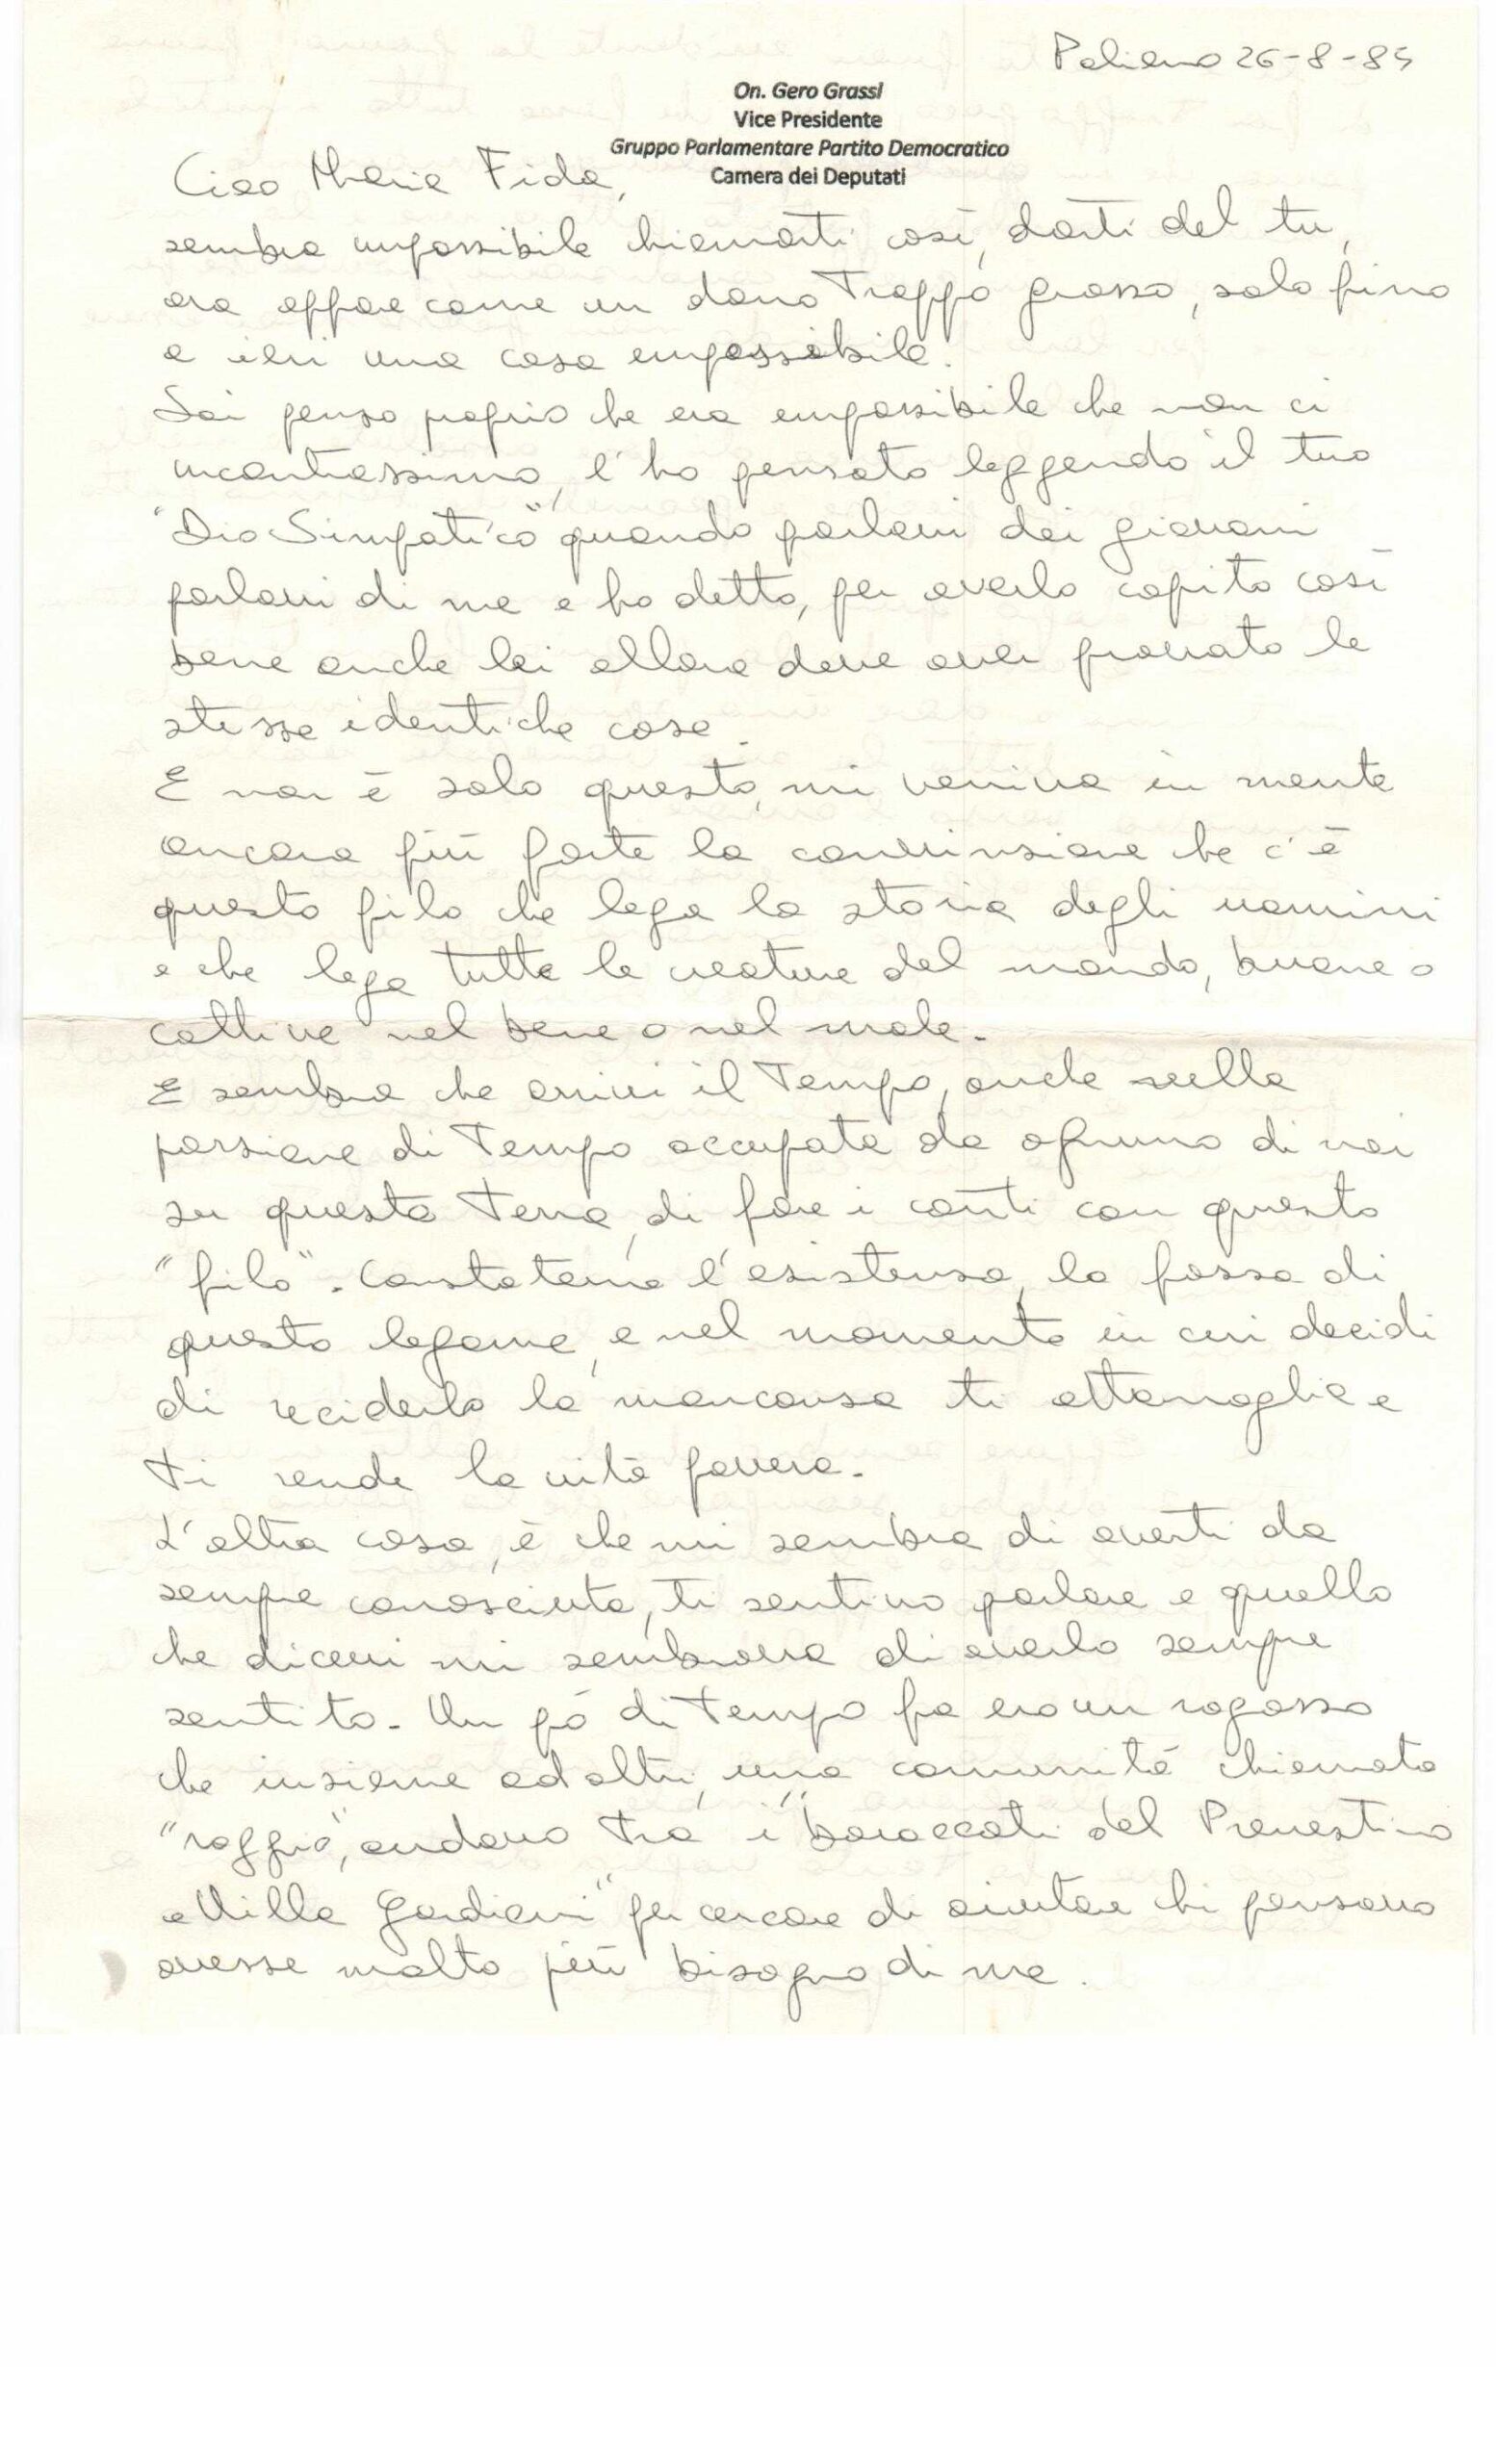 Paliano 26-8-85
On. Gero Grassi
Vice Presidente
Gruppo Parlamentare Partito Democratico
Camera dei Deputati
Ciao Maria Fida,
sembra impossibile chiamarti così, darti del tu,
ora appare come un dono troppo grosso, solo fino
a ieri una cosa impossibile.
Sai penso proprio che era impossibile che non ci
incontrassimo, l'ho pensato leggendo il tuo
"Dio Simpatico" quando parlavi dei giovani
parlavi di me e ho detto, per averlo capito così
bene anche lei allora deve aver provato le
stesse identiche cose.
E non è solo questo, mi veniva in mente
ancora più forte la convinzione che c'è
questo filo che lega la storia degli uomini
e che lega tutte le creature del mondo, buone o
cattive nel bene o nel male.
E sembra che arrivi il tempo, anche nella
porzione di tempo occupata da ognuno di noi
su questa terra, di fare i conti con questo
"filo". Constaterne l'esistenza, la forza di
questo legame, e nel momento in cui decidi
di reciderlo la mancanza ti attanaglia e
ti rende la vita povera.
L'altra cosa, è che mi sembra di averti da
sempre conosciuta, ti sentivo parlare e quello
che dicevi mi sembrava di averlo sempre
sentito. Un pò di tempo fa ero un ragazzo
che insieme ad altri, una comunità chiamata
"raggio", andavo tra i "baraccati del Prenestino
e Villa Gordiani" per cercare di aiutare chi pensavo
avesse molto più bisogno di me.